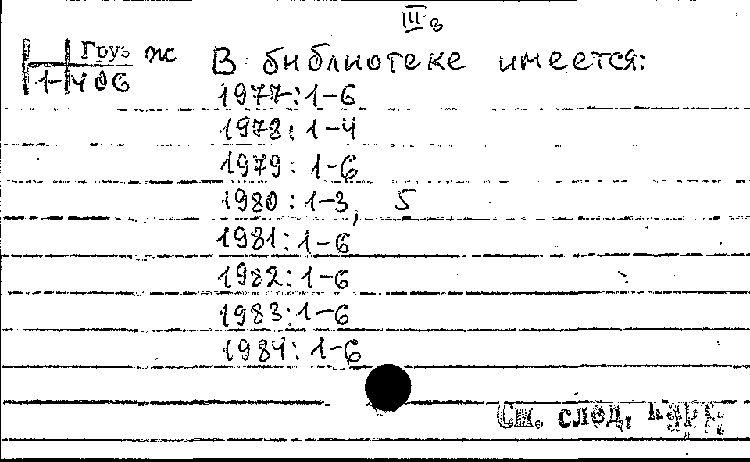 III в
Груз ж
1-406
В библиотеке имеется:
1977: 1-6
1978: 1-4
1979: 1-6
1980: 1-3, 5
1981: 1-6
1982: 1-6
1983: 1-6
1984: 1-6
См. след.